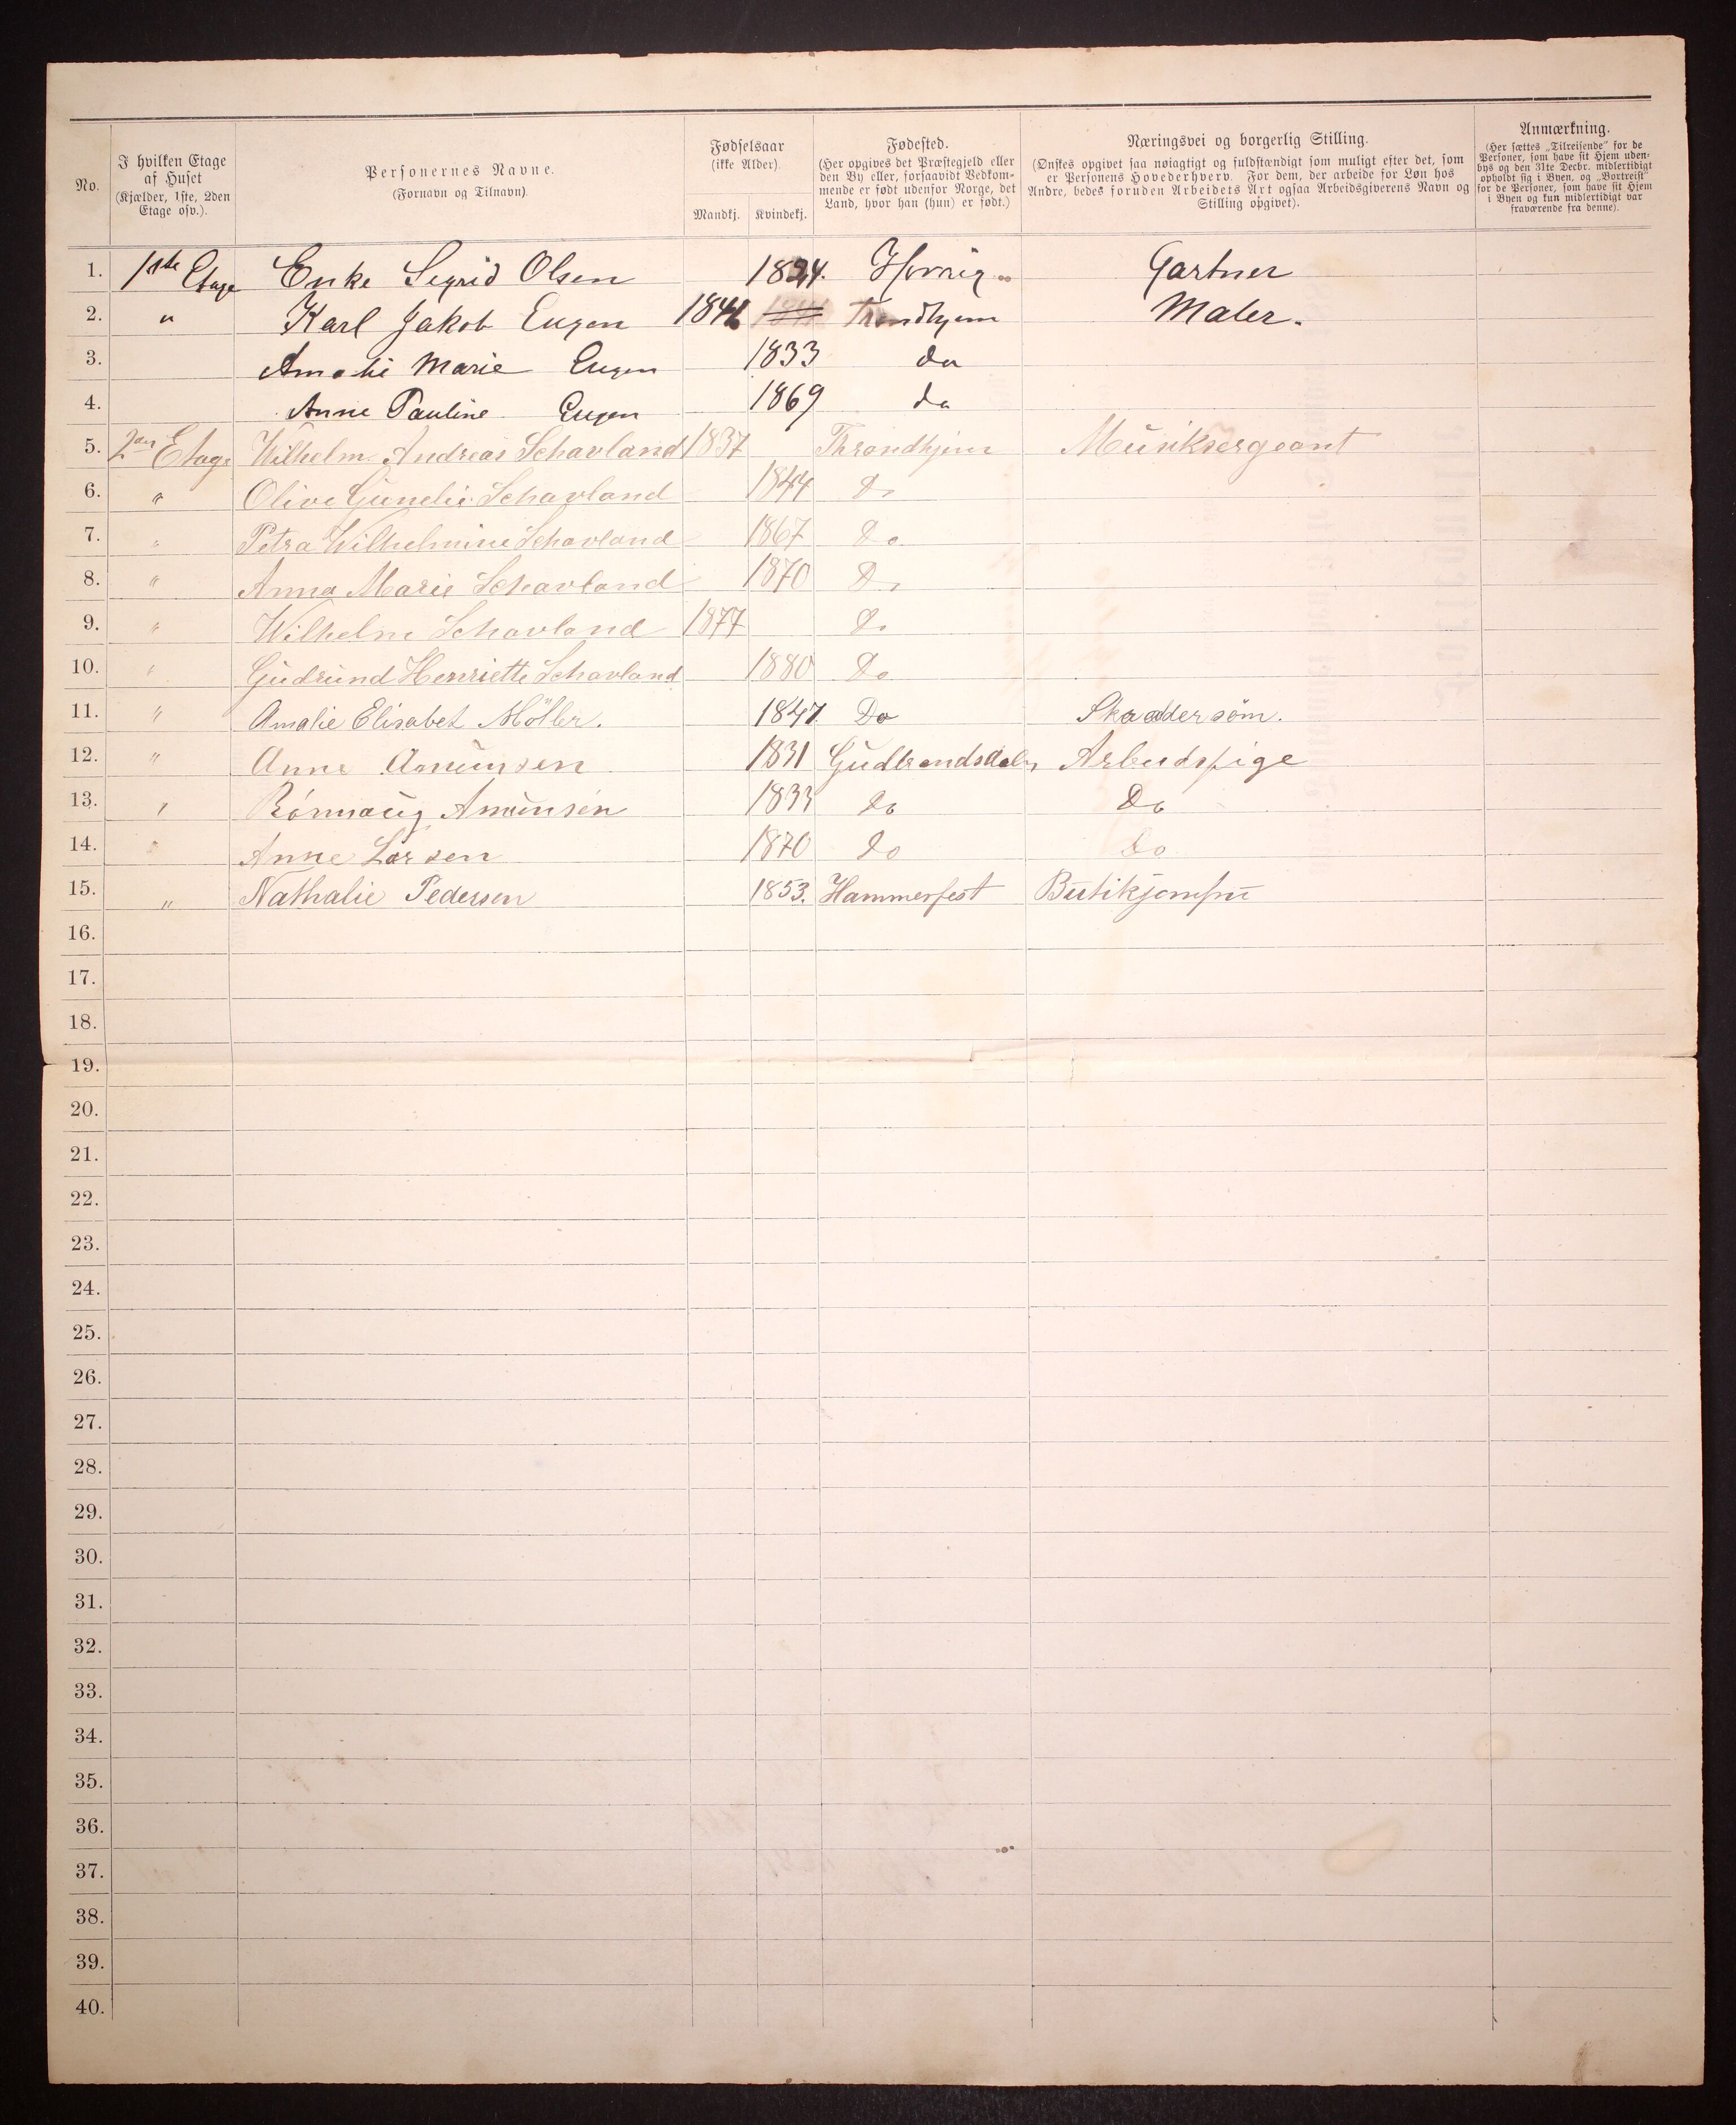 No.
I hvilken Etage af Huset (Kjælder, 1ste, 2den Etage osv.).
Personernes Navne. (Fornavn og Tilnavn).
Fødselsaar (ikke Alder).
Mandkj. Kvindekj.
Fødested. (Her opgives det Præstegjeld eller den By eller, forsaavidt Vedkommende er født udenfor Norge, det Land, hvor han (hun) er født.)
Næringsvei og borgerlig Stilling. (Ønskes opgivet saa nøiagtigt og fuldstændigt som muligt efter det, som er Personens Hovederhverv. For dem, der arbeide for Løn hos Andre, bedes foruden Arbeidets Art ogsaa Arbeidsgiverens Navn og Stilling opgivet).
Anmærkning. (Her sættes „Tilreisende" for de Personer, som have sit Hjem udenbys og den 31te Decbr. midlertidigt opholdt sig i Byen, og „Bortreist" for de Personer, som have sit Hjem i Byen og kun midlertidigt var fraværende fra denne).
1. 1ste Etage Enke Sigrid Olsen 1824. Gartner
2. " Karl Jakob Eugen 1841 Trondhjem Maler.
3. Amalie Marie Eugen 1833 do
4. Anne Pauline Eugen 1869 do
5. 2den Etage Wilhelm Andreas Schavland 1837 Throndhjem Musiksergeant
6. " Olive Schavland 1844 Do
7. " Petra Wilhelmine Schavland 1867 Do
8. " Anna Marie Schavland 1870 Do
9. " Wilhelm Schavland 1877 Do
10. " Gudrund Henriette Schavland 1880 Do
11. " Amalie Elisabet Möller. 1847 Do Skaddersöm.
12. " Anne Amunsen 1831 Gudbrandsdalen Arbeidspige
13. " Rónnaug Amunsen 1833 do Do
14. " Anne Larsen 1870 do Do
15. " Nathalie Pedersen 1853. Hammerfest Butikjomfru
16.
17.
18.
19.
20.
21.
22.
23.
24.
25.
26.
27.
28.
29.
30.
31.
32.
33.
34.
35.
36.
37.
38.
39.
40.